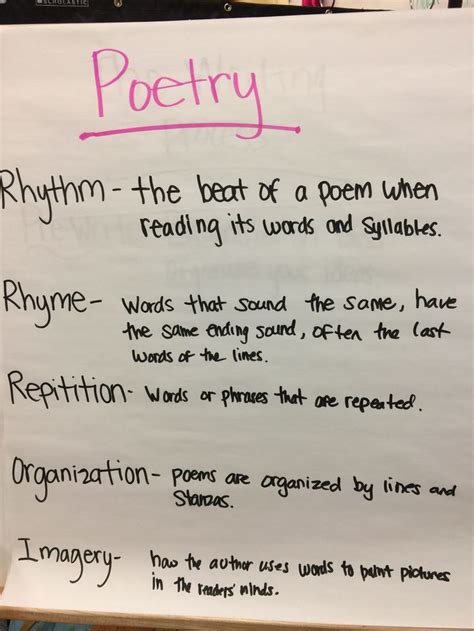 SCHOLASTIC
Poetry
Rhythm - the beat of a poem when
reading its words and syllables.
Rhyme - words that sound the same, have
the same ending sound, often the last
words of the lines.
Repitition - words or phrases that are repeated.
Organization - poems are organized by lines and
stanzas.
Imagery - how the author uses words to paint pictures
in the readers' minds.